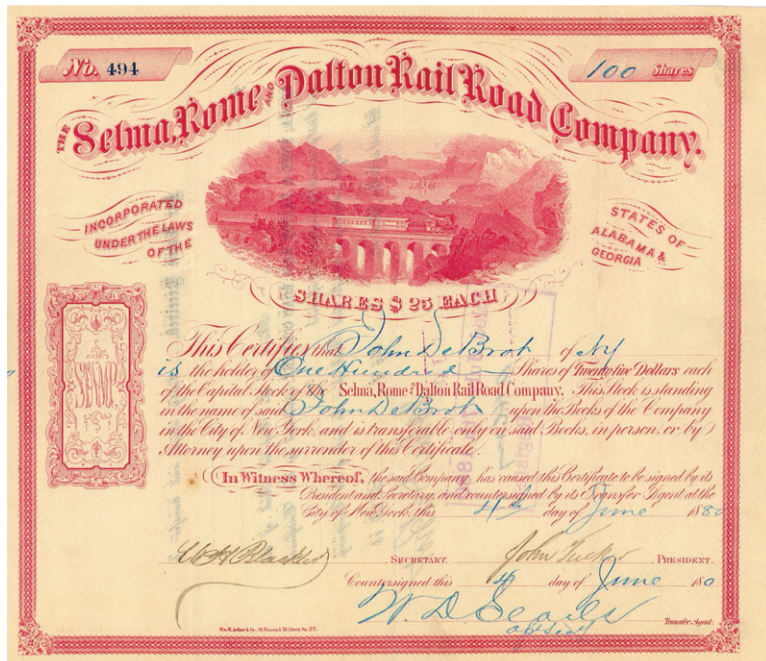 No. 494
100 Shares
THE Selma, Rome AND Dalton Rail Road Company.
INCORPORATED
UNDER THE LAWS
OF THE
STATES OF
ALABAMA &
GEORGIA
SHARES $ 25 EACH
STOCK
This Certifies that John DeBrot of NY
is the holder of One Hundred Shares of Twenty five Dollars each
of the Capital Stock of the Selma, Rome and Dalton Rail Road Company. This Stock is standing
in the name of said John DeBrot upon the Books of the Company
in the City of New York, and is transferable only on said Books, in person, or by
Attorney upon the surrender of this Certificate.
In Witness Whereof, the said Company has caused this Certificate to be signed by its
President and Secretary, and countersigned by its Transfer Agent at the
City of New York, this 4th day of June 1880
SECRETARY. John Tucker PRESIDENT.
Countersigned this 4 day of June 180
Transfer Agent.